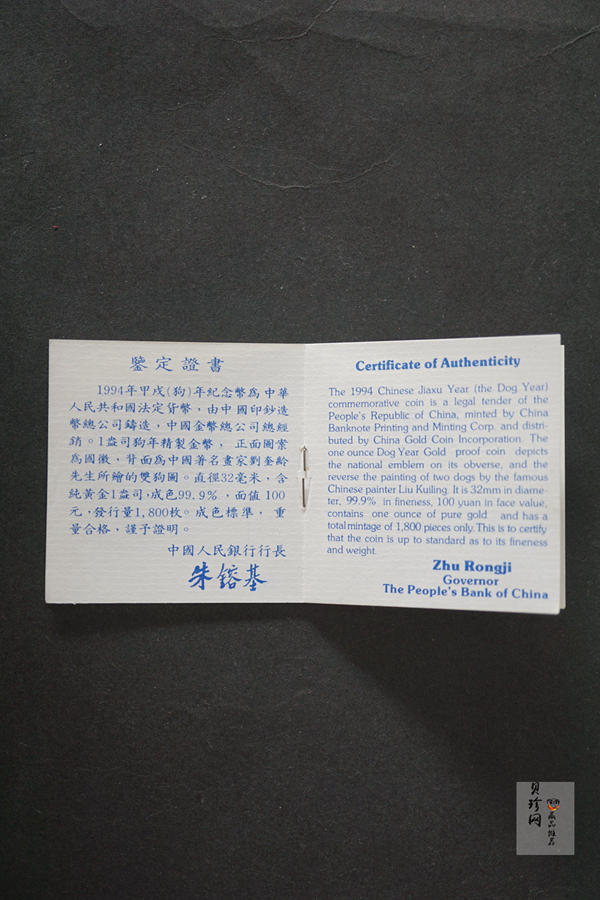 鑒定證書
1994年甲戌(狗)年紀念幣為中華
人民共和國法定貨幣，由中國印鈔造
幣總公司鑄造，中國金幣總公司總經
銷。1盎司狗年精製金幣， 正面圖案
為國徽，背面為中國著名畫家劉奎齡
先生所繪的雙狗圖。直徑32毫米，含
純黃金1盎司，成色99.9%，面值100
元，發行量1,800枚。成色標準， 重
量合格，謹予證明。
中國人民銀行行長
朱鎔基
Certificate of Authenticity
The 1994 Chinese Jiaxu Year (the Dog Year)
commemorative coin is a legal tender of the
People's Republic of China, minted by China
Banknote Printing and Minting Corp. and distri-
buted by China Gold Coin Incorporation. The
one ounce Dog Year Gold proof coin depicts
the national emblem on its obverse, and the
reverse the painting of two dogs by the famous
Chinese painter Liu Kuiling. It is 32mm in diame-
ter, 99.9% in fineness, 100 yuan in face value,
contains one ounce of pure gold and has a
total mintage of 1,800 pieces only. This is to certify
that the coin is up to standard as to its fineness
and weight.
Zhu Rongji
Governor
The People's Bank of China
贝珍网
藏品推荐